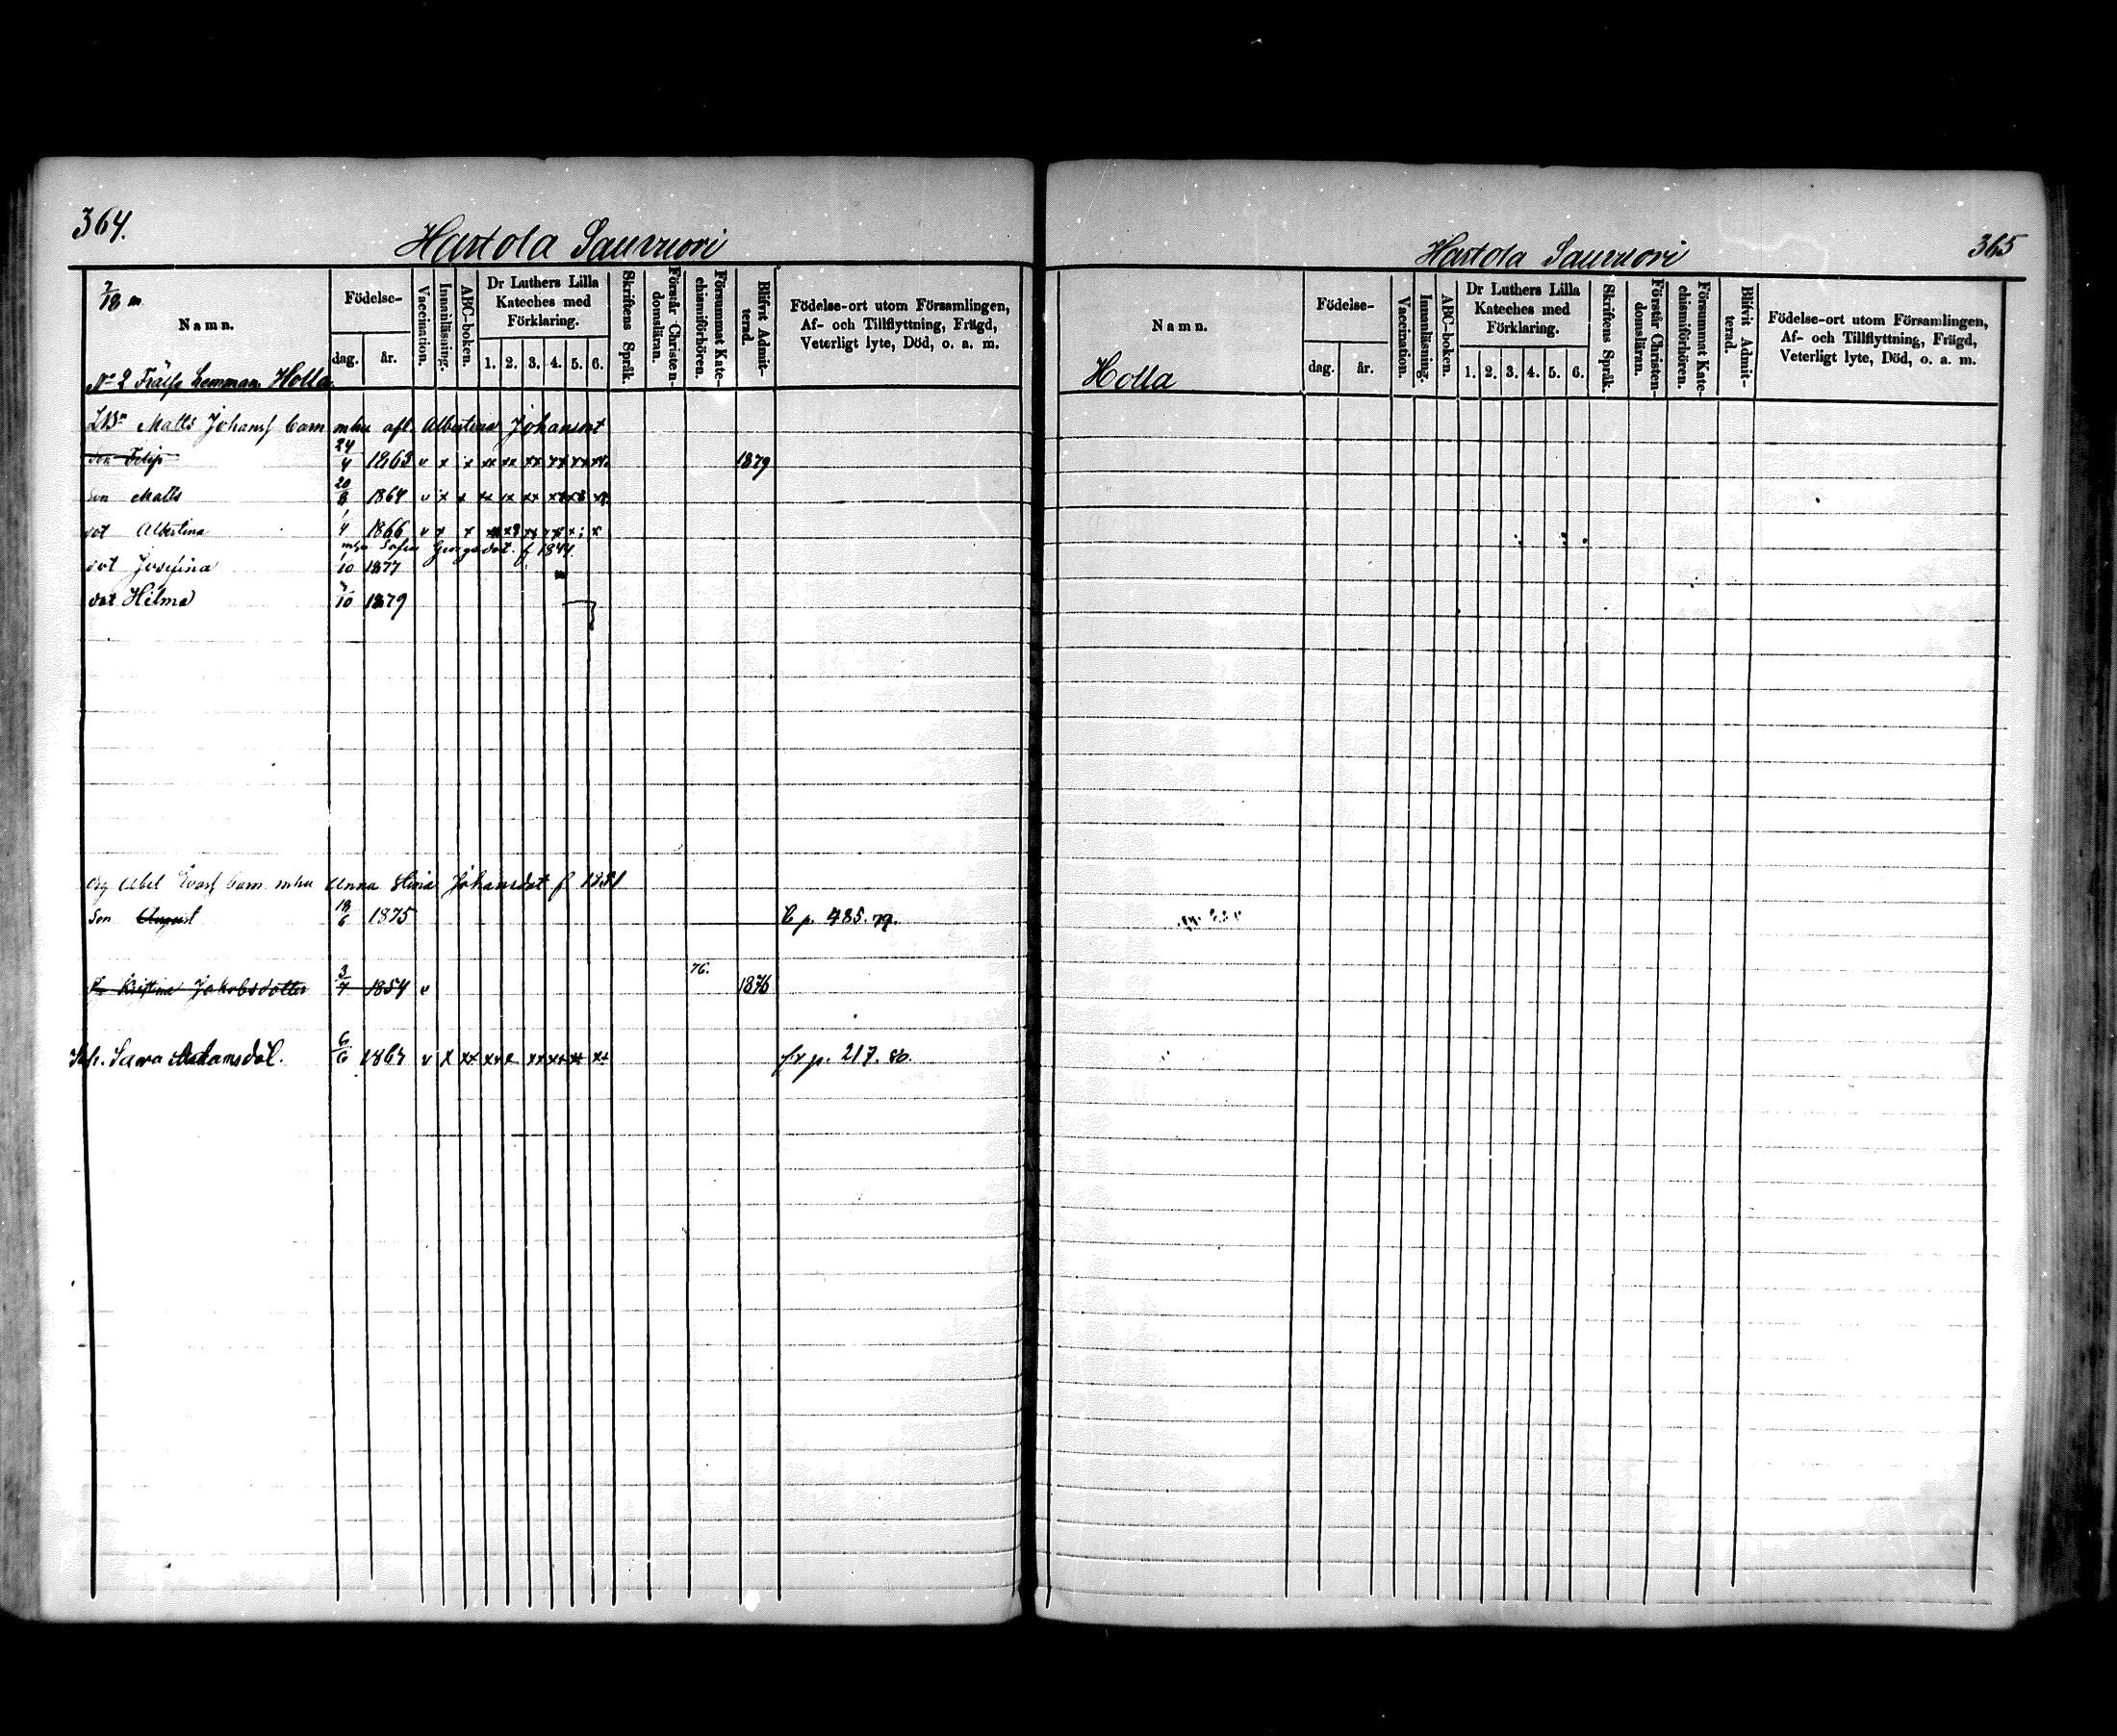 364.
Hartola Sauvuori
7/18 m
Namn.
Födelse-
dag.
år.
Vaccination.
Innanläsning.
ABC-boken.
Dr Luthers Lilla
Kateches med
Förklaring.
1. 2. 3. 4. 5. 6.
Skriftens Språk.
Förstår Christen-
domsläran.
Försummat Kate-
chismiförhören.
Blifvit Admit-
terad.
Födelse-ort utom Församlingen,
Af- och Tillflyttning, Frägd,
Veterligt lyte, Död, o. a. m.
No 2 Frälse Lemman Holla
Matts Johansf barn mhu afl. Albertina Johansdt
son Filip 24/4 1863 v x x xx xx xx xx xx xx 1879
son Matts 20/8 1864 v x x xx xx xx
dot Albertina 1/4 1866 v x x
mhu Sofia Georgsdot. f 1844.
dot Josefina 1/10 1877
dot Hilma 7/10 1879
Abel barn mhu Anna Stina Johansdot f 1851
Son August 18/6 1875 B p. 485. 79.
76.
Kristina Jakobsdotter 3/7 1854 v 1876
Sara Adamsdot. 6/6 186 v x xx fr p. 217. 80.
Hartola Sauvuori
365
Namn.
Födelse-
dag.
år.
Vaccination.
Innanläsning.
ABC-boken.
Dr Luthers Lilla
Kateches med
Förklaring.
1. 2. 3. 4. 5. 6.
Skriftens Språk.
Förstår Christen-
domsläran.
Försummat Kate-
chismiförhören.
Blifvit Admit-
terad.
Födelse-ort utom Församlingen,
Af- och Tillflyttning, Frägd,
Veterligt lyte, Död, o. a. m.
Holla